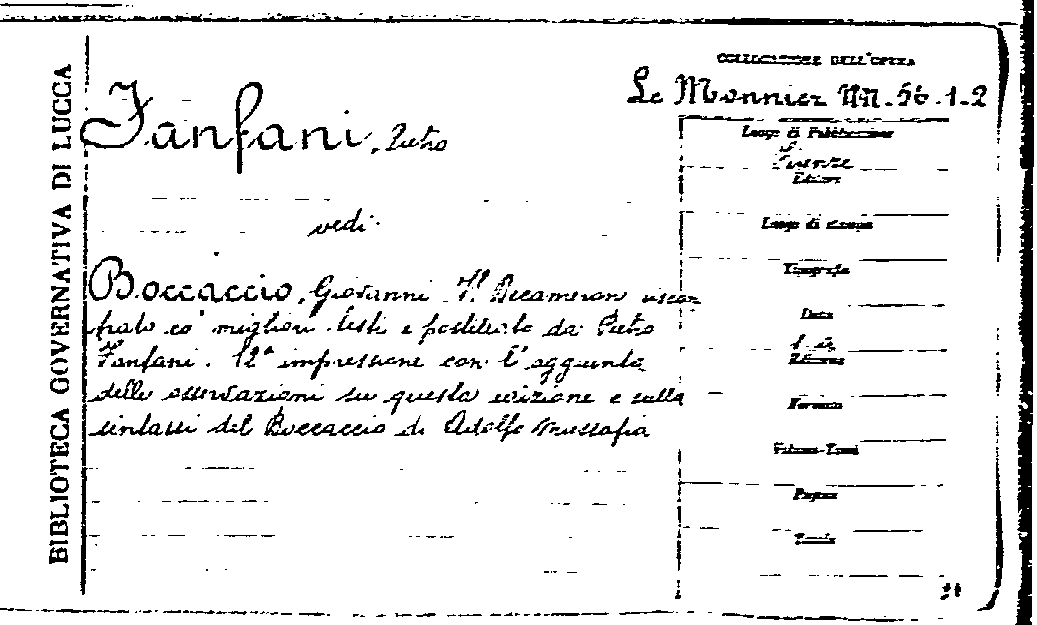 BIBLIOTECA GOVERNATIVA DI LUCCA
COLLOCAZIONE DELL'OPERA
Le Monnier NN.56.1-2
Fanfani, Pietro
vedi
Boccaccio, Giovanni Il Decameron riscon
trato co' migliori testi e postillato da Pietro
Fanfani. 12ª impressione con l'aggiunta
delle osservazioni su questa edizione e sulla
sintassi del Boccaccio di Adolfo Mussafia
Luogo di Pubblicazione
Firenze
Editore
Luogo di stampa
Tipografia
Data
Edizione
Formato
Volume-Tomi
Pagine